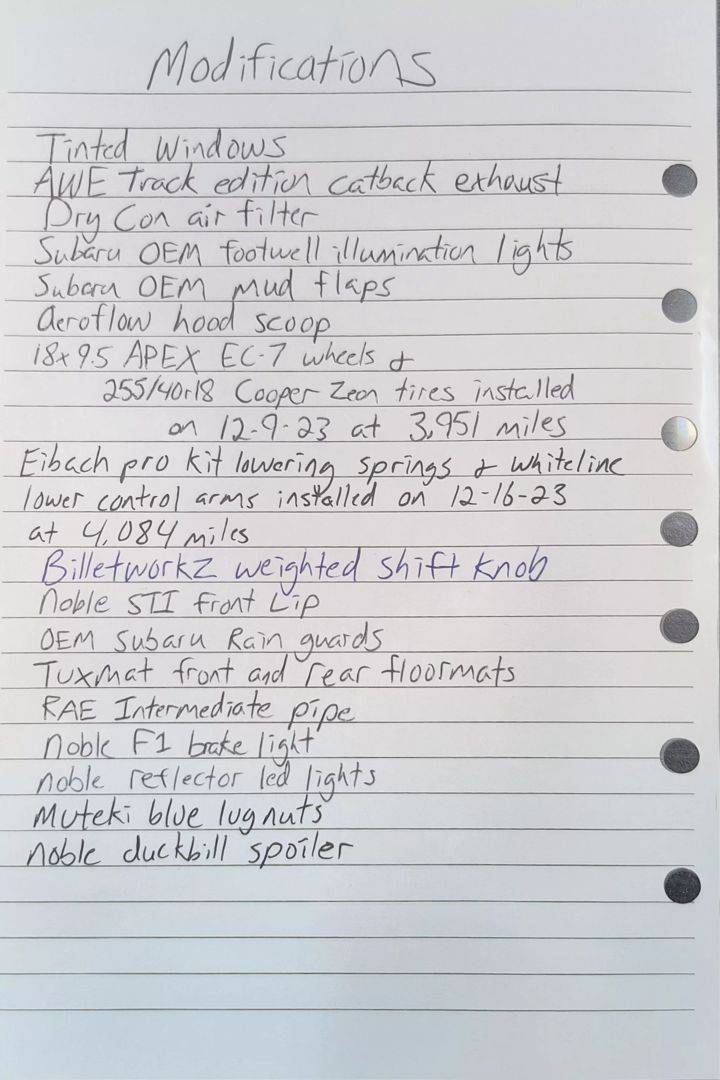 Modifications
Tinted Windows
AWE Track edition catback exhaust
Dry Con air filter
Subaru OEM footwell illumination lights
Subaru OEM mud flaps
aeroflow hood scoop
18x9.5 APEX EC-7 wheels &
255/40r18 Cooper Zeon tires installed
on 12-9-23 at 3,951 miles
Eibach pro kit lowering springs & whiteline
lower control arms installed on 12-16-23
at 4,084 miles
Billetworkz weighted shift knob
noble STI front Lip
OEM Subaru Rain guards
Tuxmat front and rear floormats
RAE Intermediate pipe
noble F1 brake light
noble reflector led lights
Muteki blue lug nuts
noble duckbill spoiler